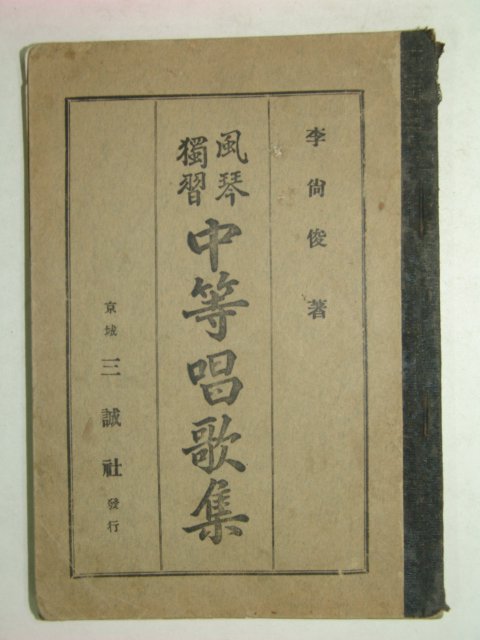 李尙俊 著
風琴獨習
中等唱歌集
京城 三誠社 發行